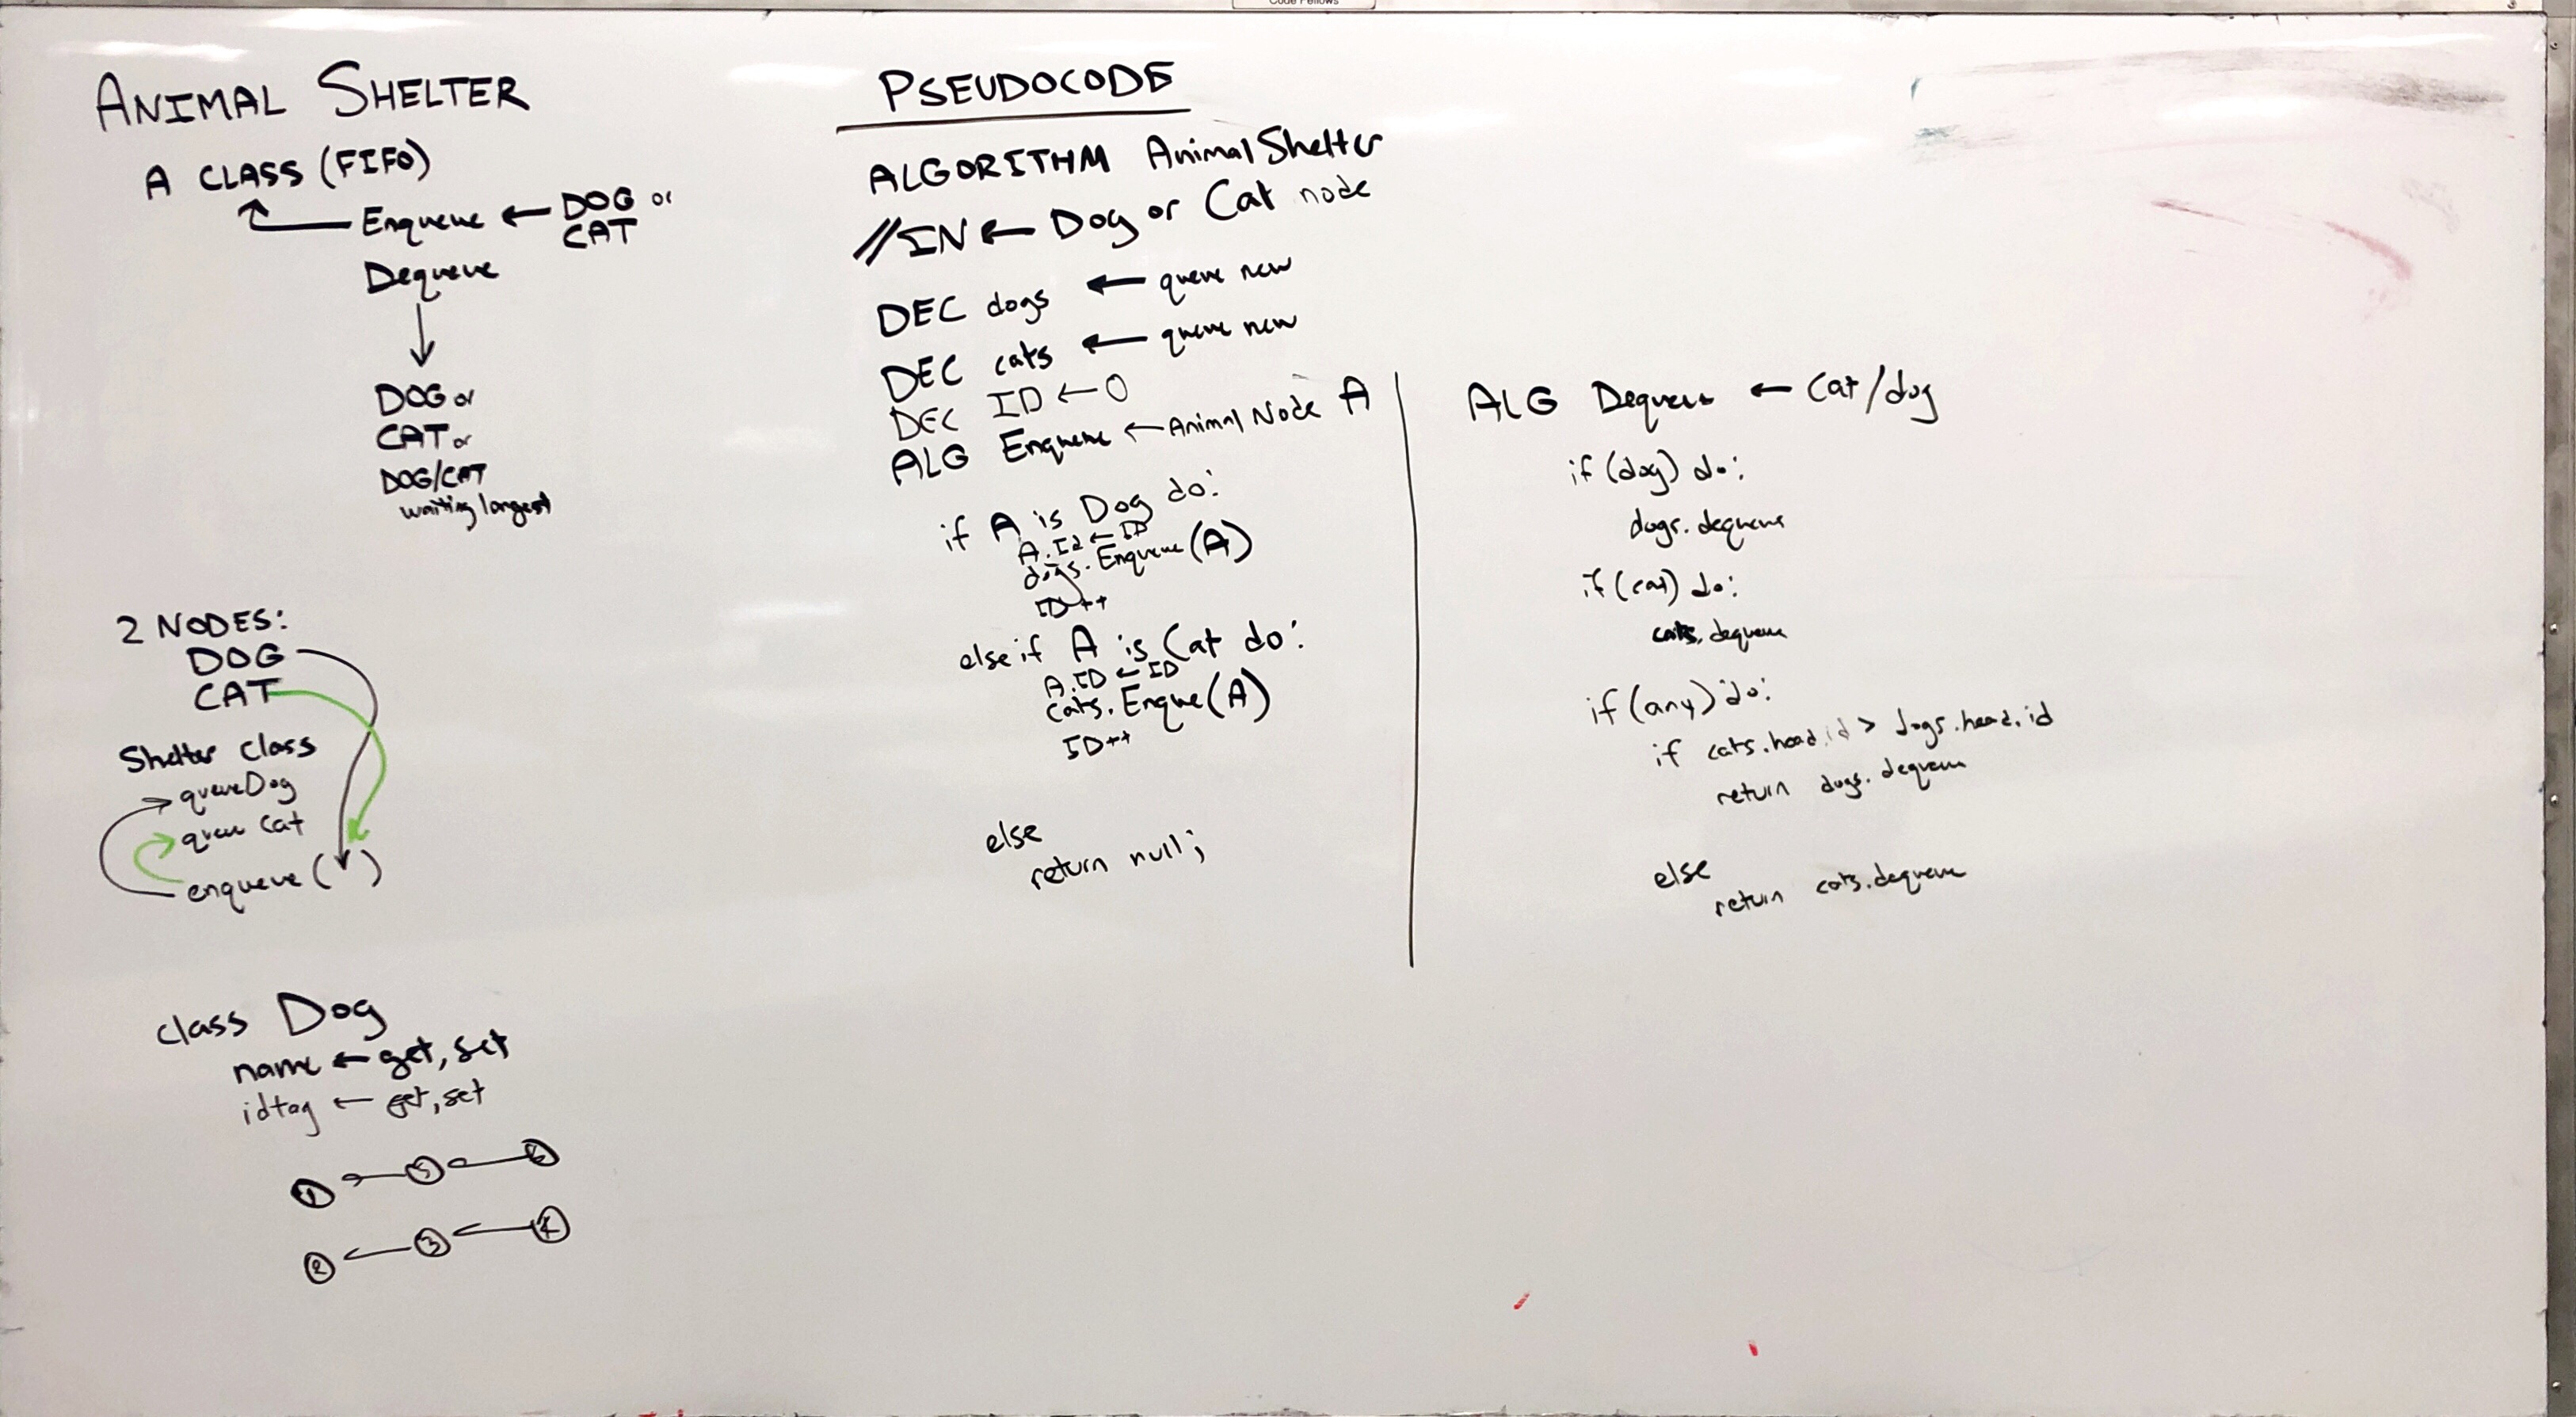 Code Fellows
ANIMAL SHELTER
A CLASS (FIFO)
Enqueue ← DOG or
CAT
Dequeue
DOG or
CAT or
DOG/CAT
waiting longest
2 NODES:
DOG
CAT
Shelter Class
queueDog
queue Cat
enqueue ( )
class Dog
name ← get, set
idtag ← get, set
1 ← 5 ← 6
2 ← 3 ← 4
PSEUDOCODE
ALGORITHM AnimalShelter
//IN ← Dog or Cat node
DEC dogs ← queue new
DEC cats ← queue new
DEC ID ← 0
ALG Enqueue ← Animal Node A
if A is Dog do:
A.Id ← ID
dogs.Enqueue(A)
ID++
else if A is Cat do:
A.ID ← ID
cats.Enque(A)
ID++
else
return null;
ALG Dequeue ← Cat/dog
if (dog) do:
dogs.dequeue
if (cat) do:
cats.dequeue
if (any) do:
if cats.head.id > dogs.head.id
return dogs.dequeue
else
return cats.dequeue